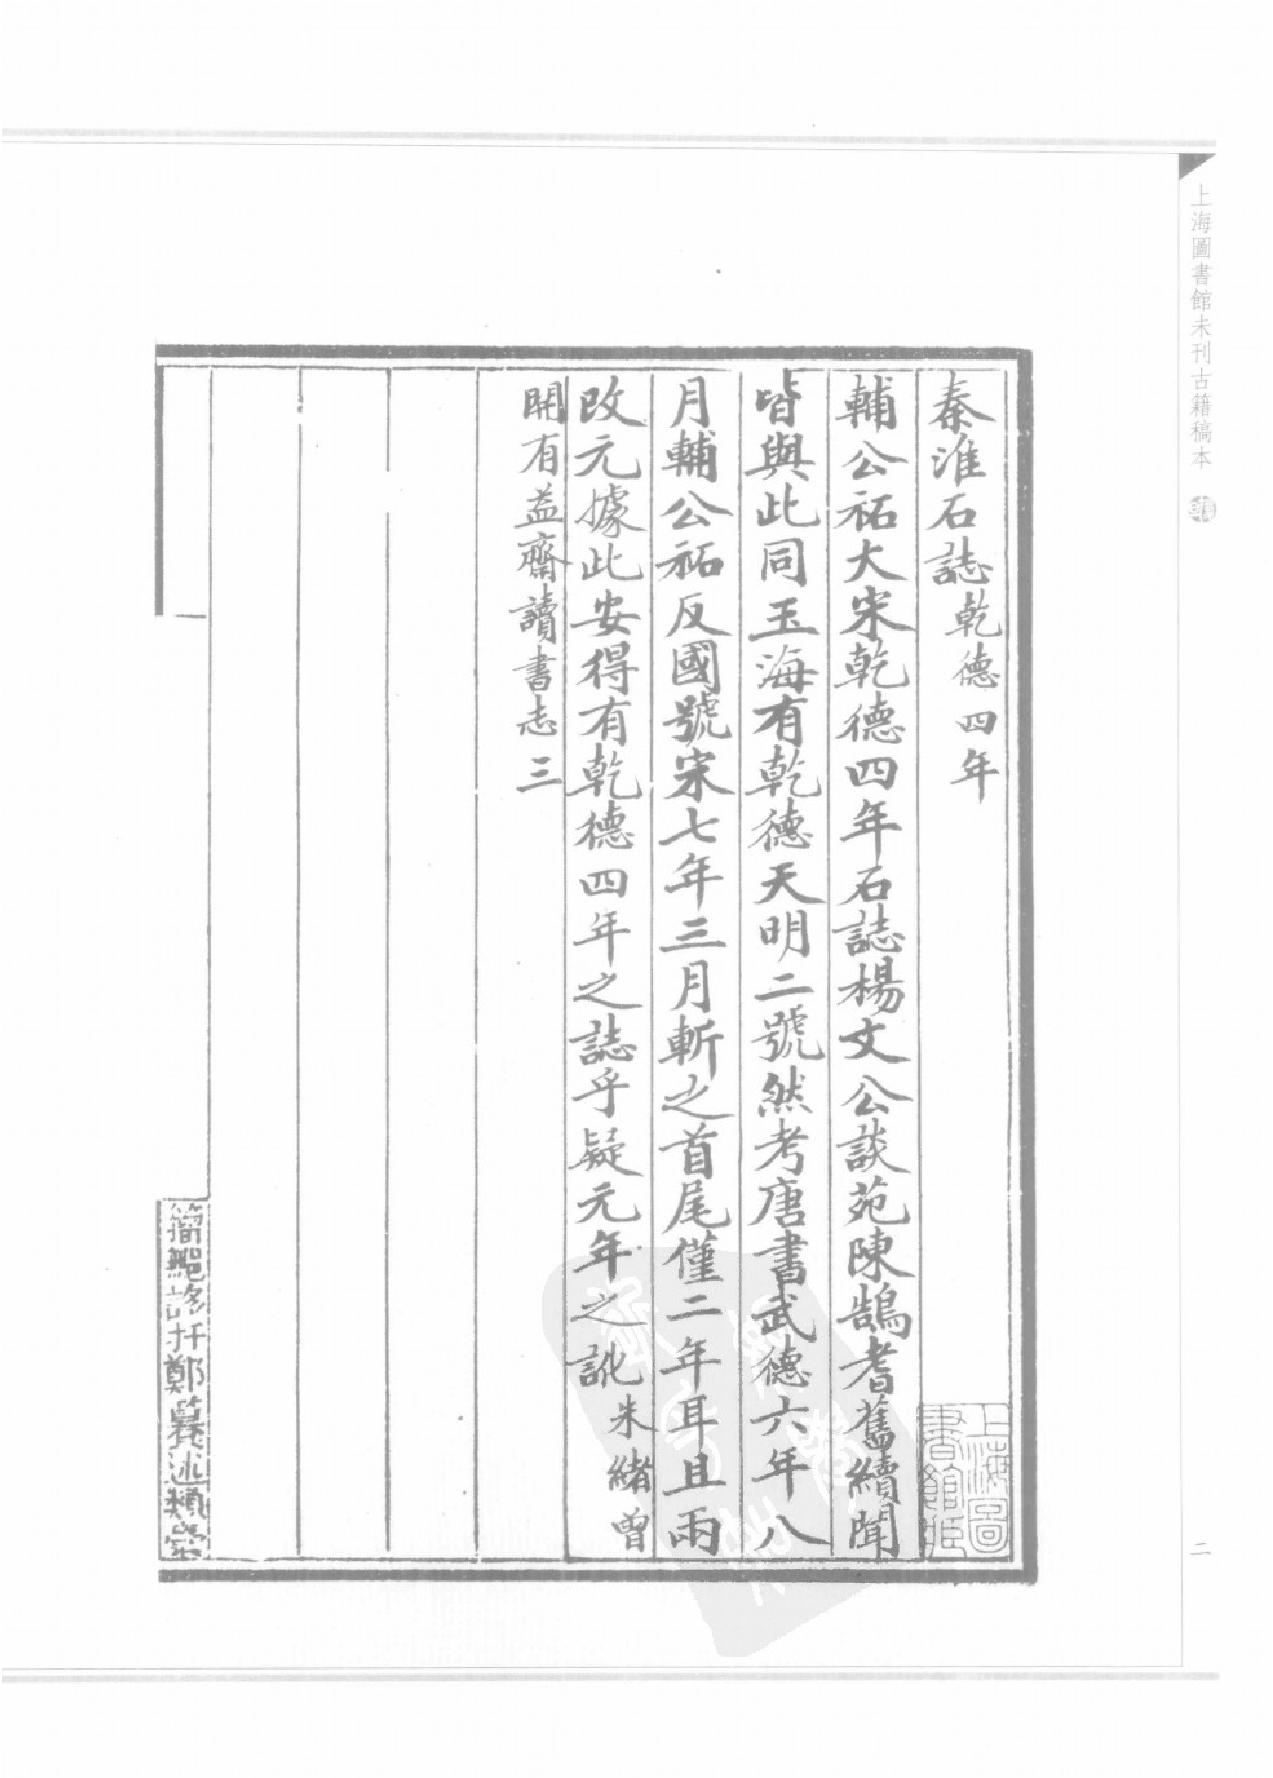 上海圖書館未刊古籍稿本
二
秦淮石誌乾德四年
輔公祏大宋乾德四年石誌楊文公談苑陳鵠耆舊續聞
皆與此同玉海有乾德天明二號然考唐書武德六年八
月輔公祏反國號宋七年三月斬之首尾僅二年耳且兩
改元據此安得有乾德四年之誌乎疑元年之訛朱緒曾
開有益齋讀書志三
上海圖
書館